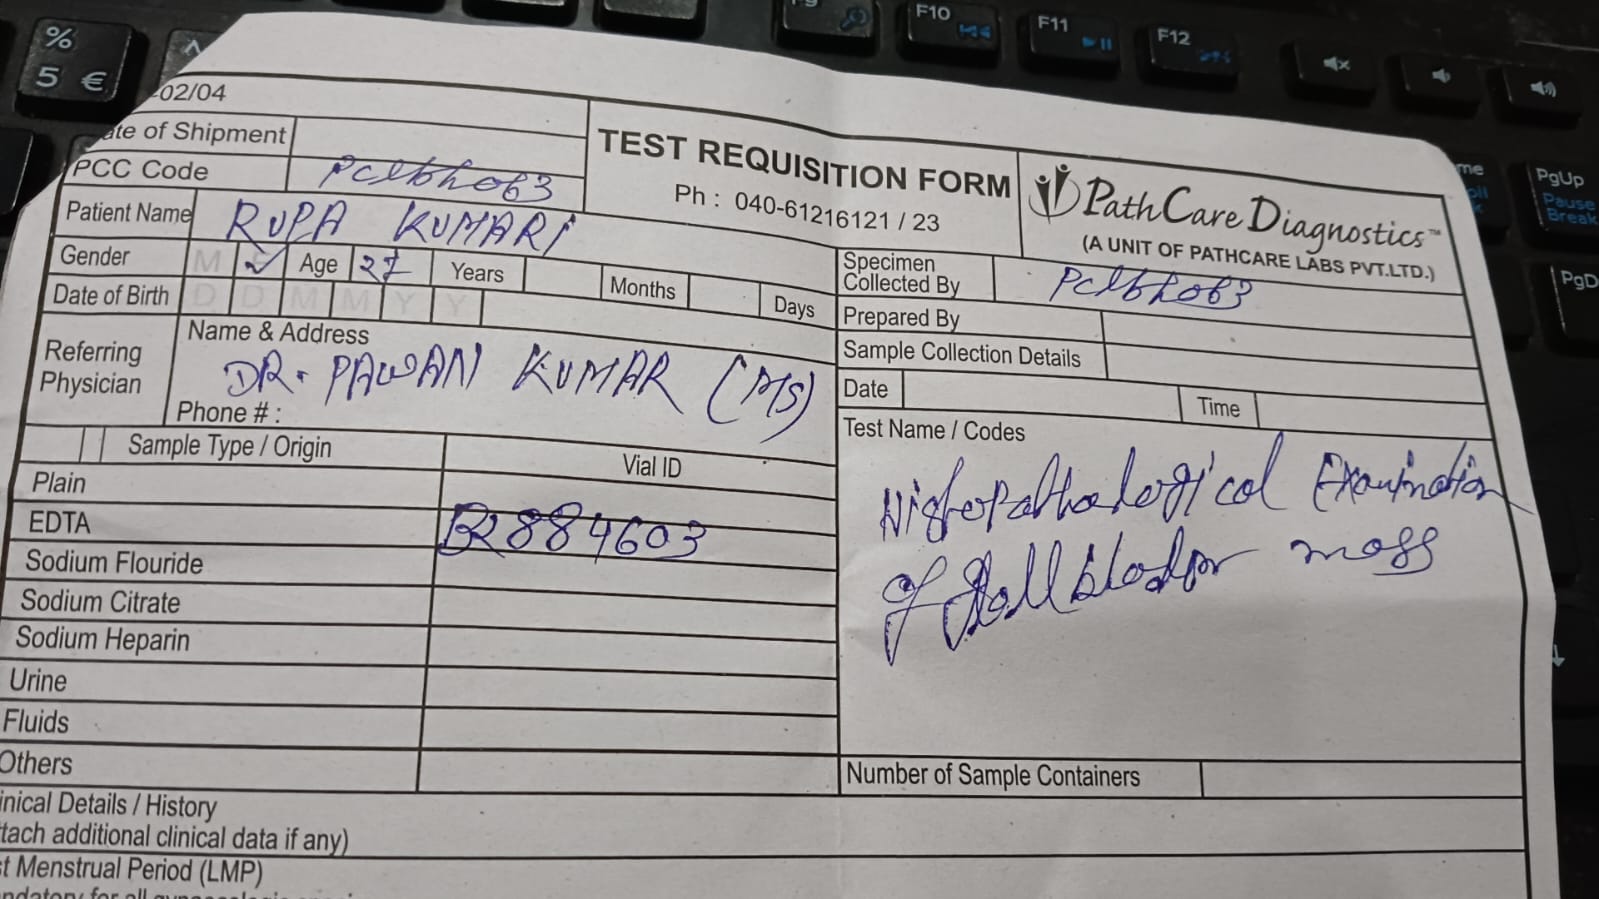 % 5 €
F9
F10
F11
F12
PgUp
Pause
Break
-02/04
ate of Shipment
PCC Code Pclbho63
TEST REQUISITION FORM
Ph : 040-61216121 / 23
PathCare Diagnostics™
(A UNIT OF PATHCARE LABS PVT.LTD.)
Patient Name RUPA KUMARI
Gender M ✓ Age 27 Years Months Days
Date of Birth D D M M Y Y
Specimen
Collected By Pclbho63
Prepared By
Sample Collection Details
Date Time
Referring
Physician
Name & Address
DR. PAWAN KUMAR (MS)
Phone # :
Sample Type / Origin Vial ID
Plain
EDTA
B2884603
Sodium Flouride
Sodium Citrate
Sodium Heparin
Urine
Fluids
Others
Test Name / Codes
Histopathological Examination
of Gall bladder mass
Number of Sample Containers
inical Details / History
tach additional clinical data if any)
st Menstrual Period (LMP)